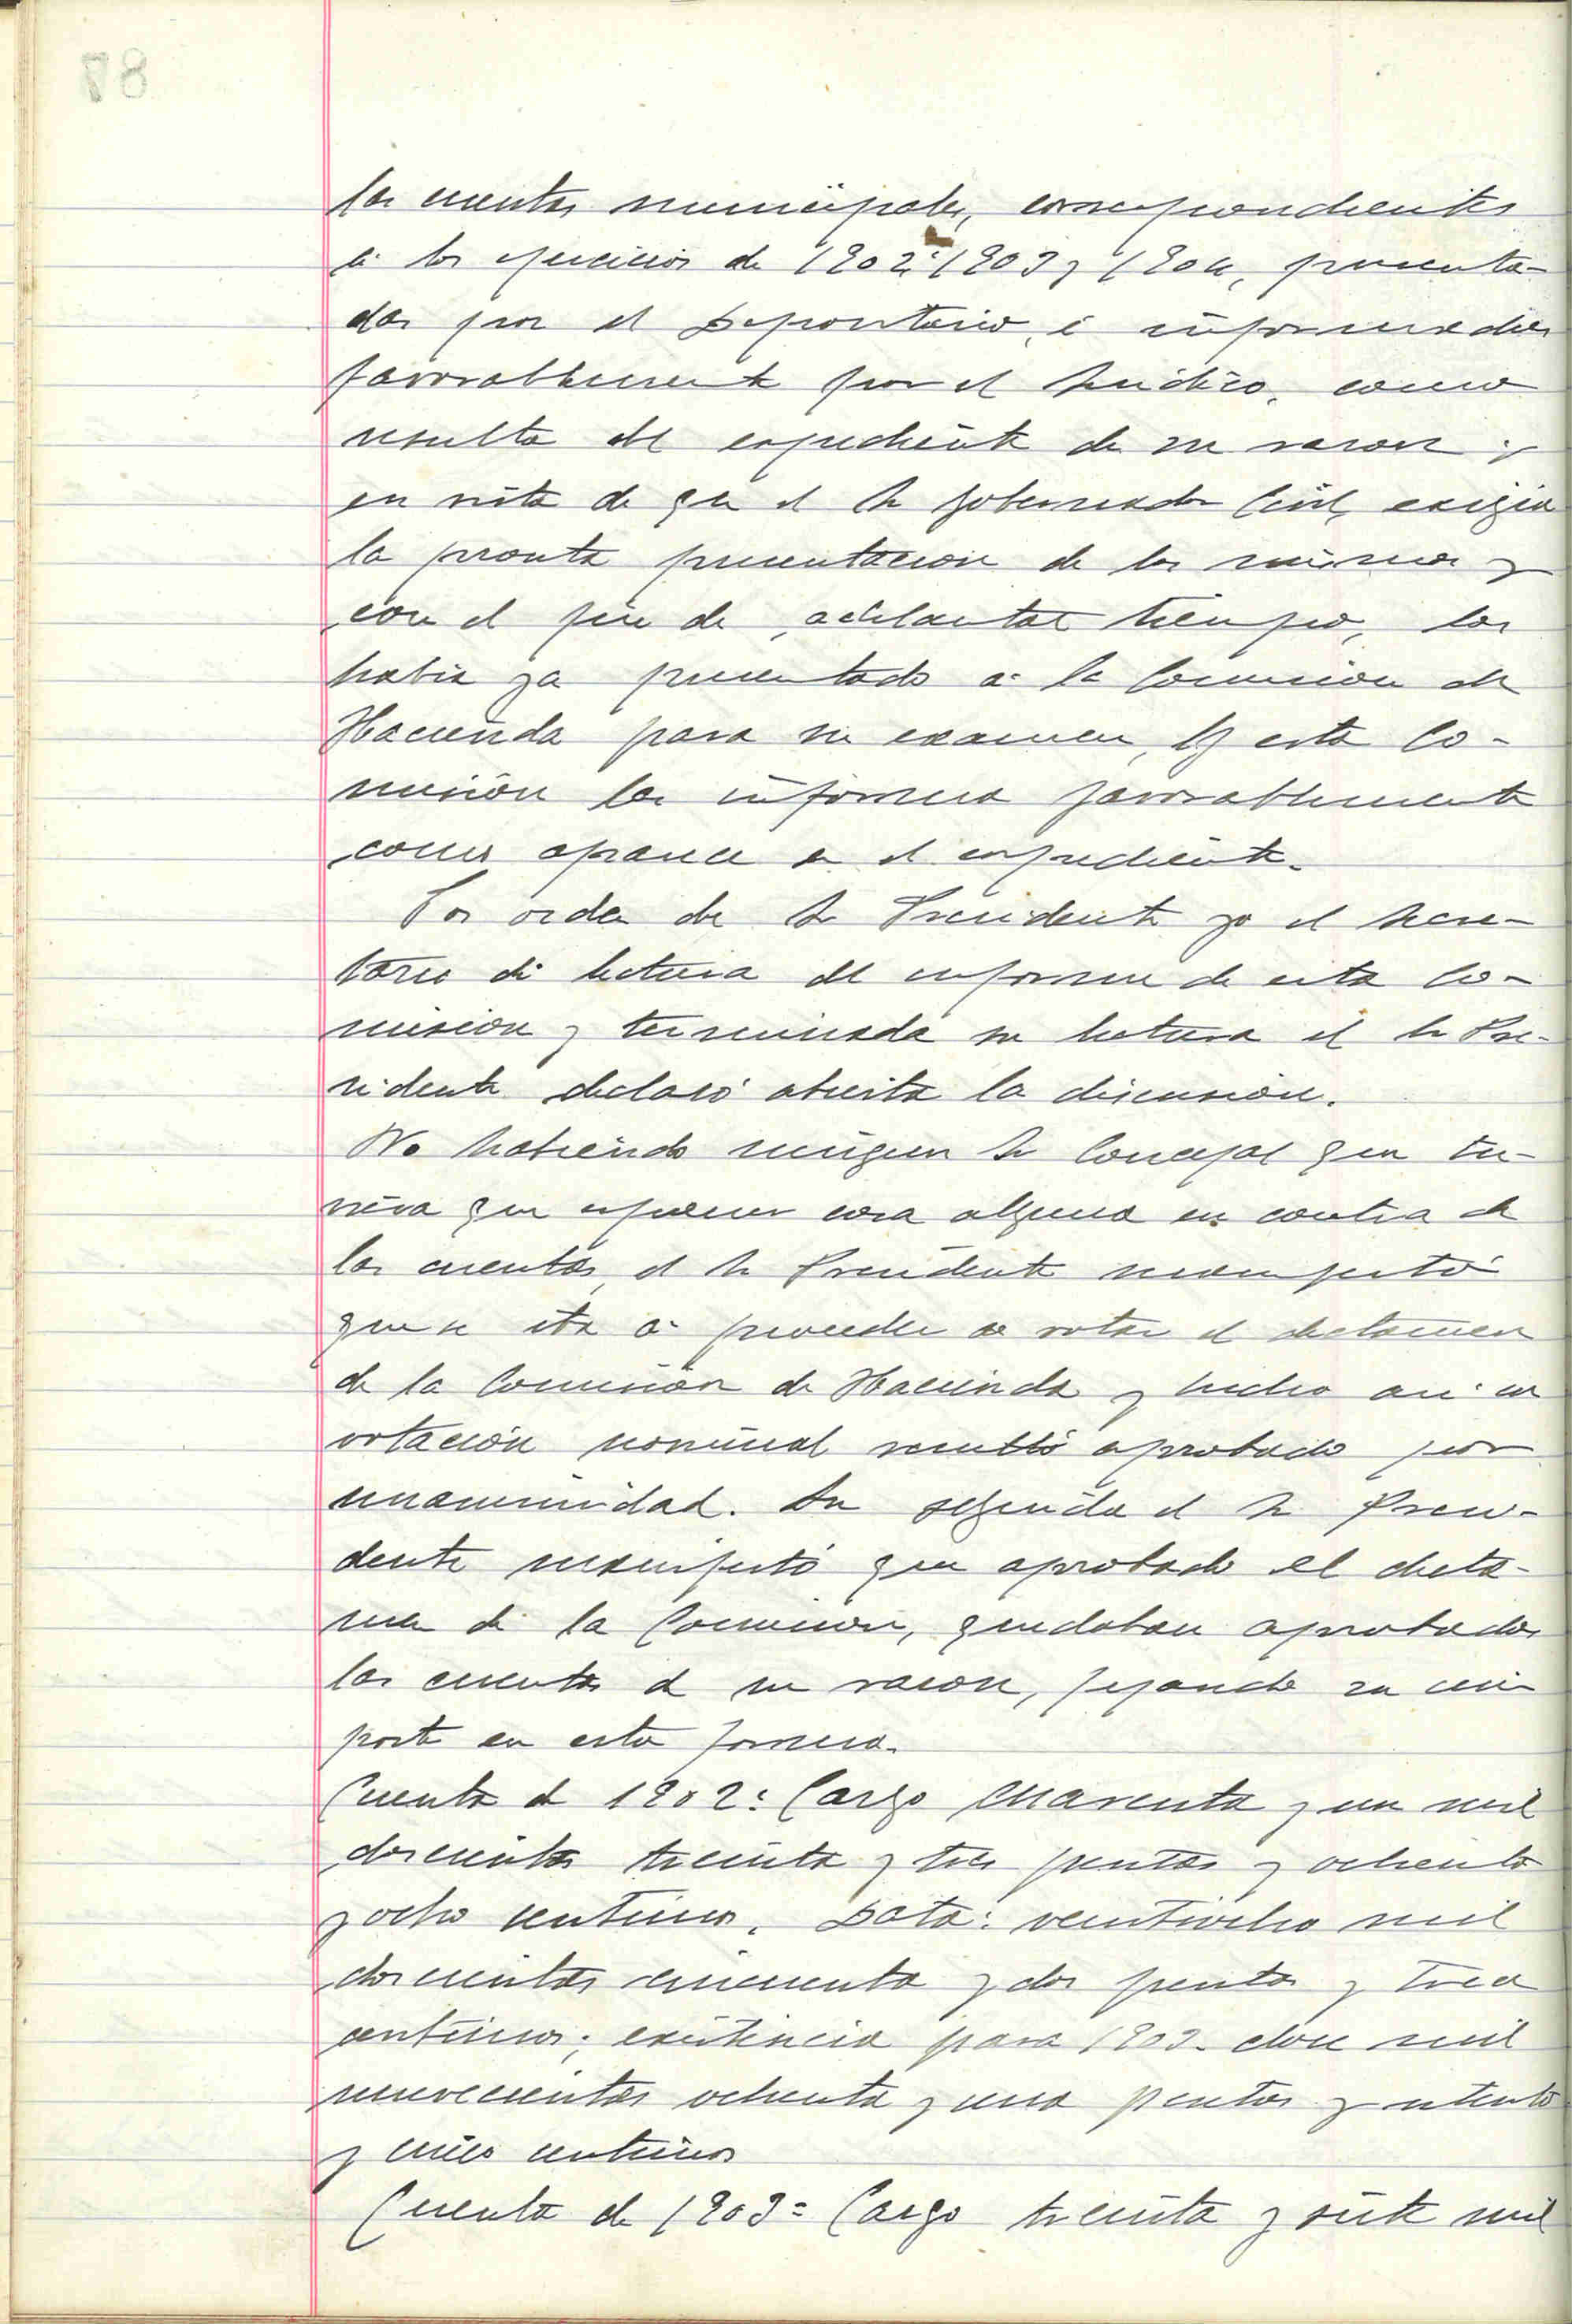 las cuentas municipales, correspondientes
á los ejercicios de 1902, 1903 y 1904, presenta-
das por el Depositario, é informadas
favorablemente por el Sindico, como
resulta del expediente de su razon y
en vista de que el Sr Gobernador Civil, exigia
la pronta presentacion de las mismas y
con el fin de adelantar tiempo, las
habia ya presentado á la Comision de
Hacienda para su examen, y esta Co-
misión las informa favorablemente
como aparece en el expediente.
Por orden del Sr Presidente yo el Secre-
tario dí lectura del informe de esta Co-
mision y terminada su lectura el Sr Pre-
sidente declaró abierta la discusión.
No habiendo ningun Sr Concejal que tu-
viera que exponer cosa alguna en contra de
las cuentas, el Sr Presidente manifestó
que se iba á proceder a votar el dictamen
de la Comisión de Hacienda y hecho asi en
votación nominal resultó aprobado por
unanimidad. En seguida el Sr Presi-
dente manifestó que aprobado el dicta-
men de la Comision, quedaban aprobadas
las cuentas de su razon, fijando su im-
porte en esta forma.
Cuenta de 1902: Cargo cuarenta y un mil
doscientas treinta y tres pesetas y ochenta
y ocho centimos. Data: veintiocho mil
doscientas cincuenta y dos pesetas y trece
centimos; existencia para 1903. doce mil
novecientas ochenta y una pesetas y setenta
y cinco centimos
Cuenta de 1903= Cargo treinta y siete mil